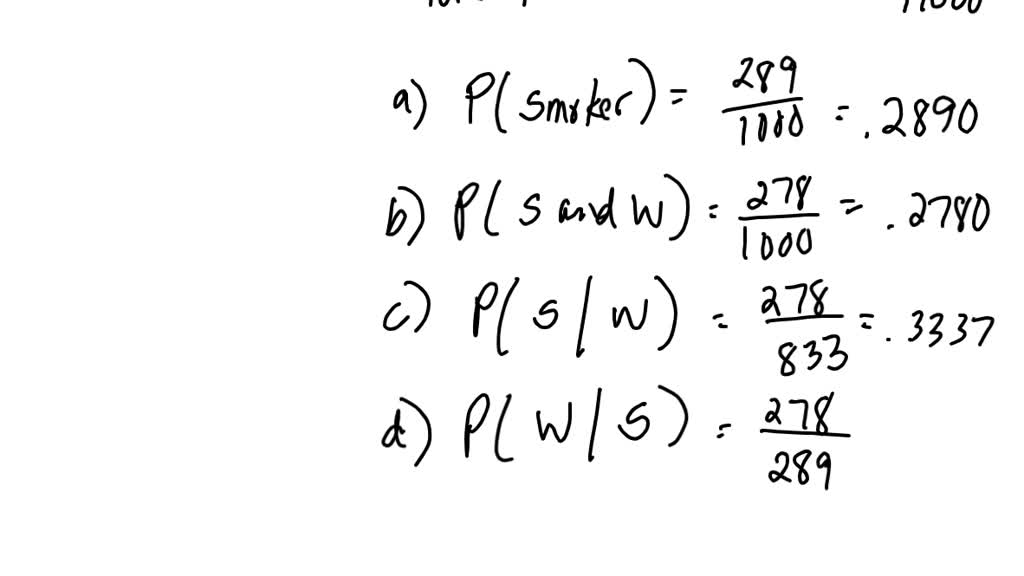 a) P(smoker) = 289/1000 = .2890
b) P(S and W) = 278/1000 = .2780
c) P(S/W) = 278/833 = .3337
d) P(W/S) = 278/289